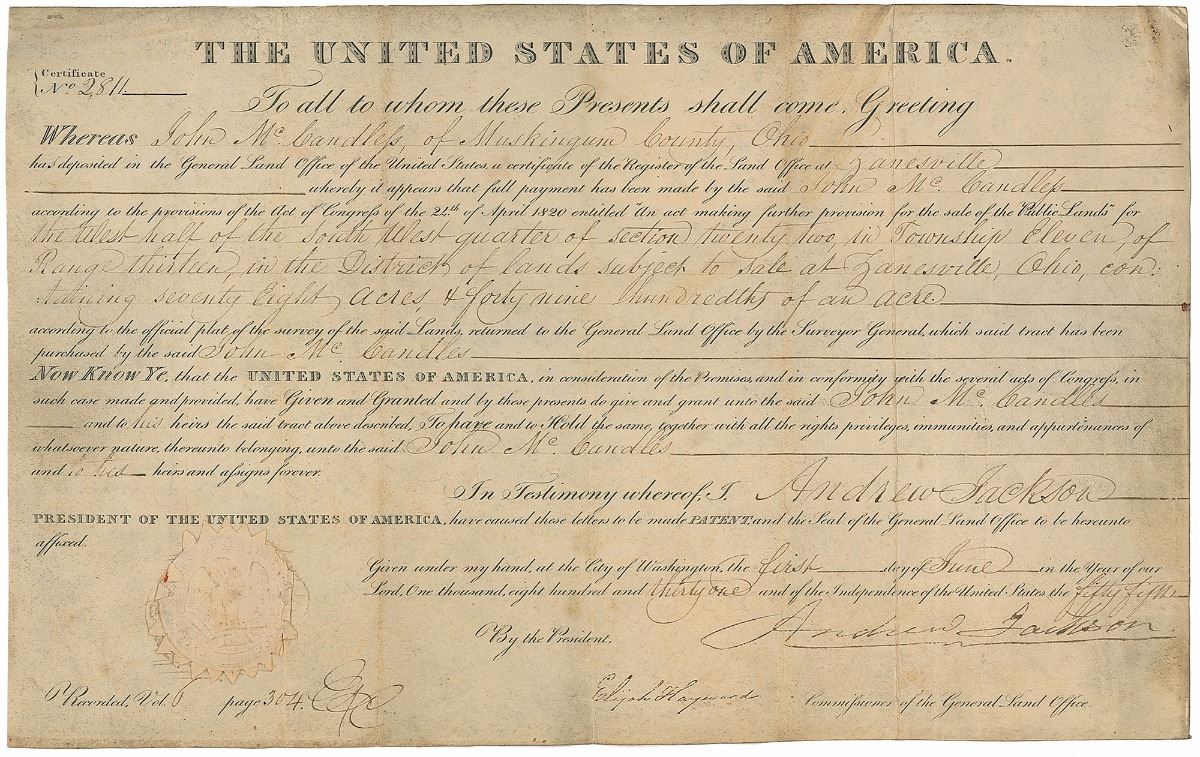 THE UNITED STATES OF AMERICA.
Certificate
No 2811
To all to whom these Presents shall come, Greeting
Whereas John Mc. Candless, of Muskingum County, Ohio
has deposited in the General Land Office of the United States, a certificate of the Register of the Land Office at Zanesville
whereby it appears that full payment has been made by the said John Mc. Candles
according to the provisions of the Act of Congress of the 24th of April 1820 entitled "An act making further provision for the sale of the Public Lands" for
the West half of the South West quarter of section twenty two, in Township Eleven, of
Range thirteen, in the District of lands subject to sale at Zanesville, Ohio, con:
:taining seventy Eight acres, & forty nine hundredths of an acre
according to the official plat of the survey of the said Lands, returned to the General Land Office by the Surveyor General, which said tract has been
purchased by the said John Mc. Candles
Now Know Ye, that the UNITED STATES OF AMERICA, in consideration of the Premises, and in conformity with the several acts of Congress, in
such case made and provided, have Given and Granted and by these presents do give and grant unto the said John Mc. Candles
and to his heirs the said tract above described, To have and to Hold the same, together with all the rights, privileges, immunities, and appurtenances of
whatsoever nature, thereunto belonging, unto the said John Mc. Candles
and to his heirs and assigns forever.
In Testimony whereof, I, Andrew Jackson
PRESIDENT OF THE UNITED STATES OF AMERICA, have caused these letters to be made PATENT and the Seal of the General Land Office to be hereunto
affixed.
Given under my hand, at the City of Washington, the first day of June in the Year of our
Lord, One thousand, eight hundred and thirty one and of the Independence of the United States the fifty fifth
Andrew Jackson
By the President.
Elijah Hayward Commissioner of the General Land Office
Recorded, Vol. 6 page 304